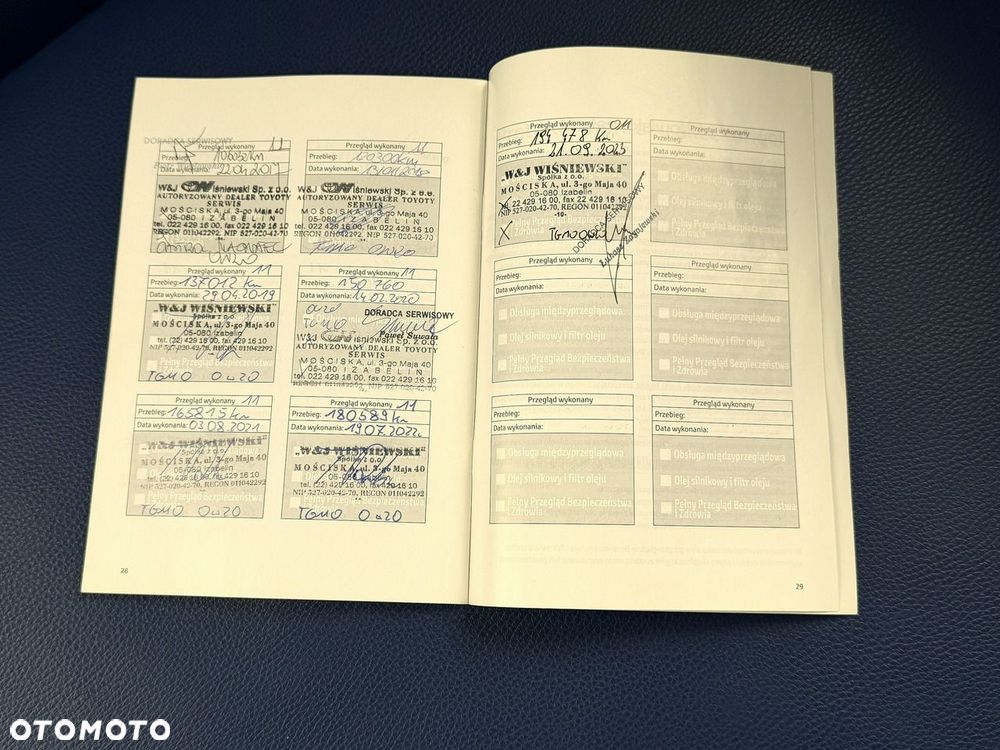 DORADCA SERWISOWY
Przegląd wykonany 11
Przebieg:
Data wykonania: 22.04.2017
W&J Wiśniewski Sp. z o.o.
AUTORYZOWANY DEALER TOYOTY
SERWIS
MOŚCISKA, ul. 3-go Maja 40
05-080 IZABELIN
tel. 022 429 16 00, fax 022 429 16 10
REGON 011042292, NIP 527-020-42-70
OW20
Przegląd wykonany 11
Przebieg:
Data wykonania:
W&J Wiśniewski Sp. z o.o.
AUTORYZOWANY DEALER TOYOTY
SERWIS
MOŚCISKA, ul. 3-go Maja 40
05-080 IZABELIN
tel. 022 429 16 00, fax 022 429 16 10
REGON 011042292, NIP 527-020-42-70
TGMO OW20
Przegląd wykonany 11
Przebieg: 137012 km
Data wykonania: 29.04.2019
„W&J WIŚNIEWSKI"
Spółka z o.o.
MOŚCISKA, ul. 3-go Maja 40
05-080 Izabelin
tel. (22) 429 16 00, fax 429 16 10
NIP 527-020-42-70, REGON 011042292
TGMO 0w20
Przegląd wykonany 11
Przebieg: 150 760
Data wykonania: 14.02.2020
TGMO
DORADCA SERWISOWY
Paweł Suwała
W&J Wiśniewski Sp. z o.o.
AUTORYZOWANY DEALER TOYOTY
SERWIS
MOŚCISKA, ul. 3-go Maja 40
05-080 IZABELIN
tel. 022 429 16 00, fax 022 429 16 10
REGON 011042292, NIP 527-020-42-70
Przegląd wykonany 11
Przebieg: 165815 km
Data wykonania: 03.08.2021
„W&J WIŚNIEWSKI"
Spółka z o.o.
MOŚCISKA, ul. 3-go Maja 40
05-080 Izabelin
tel. (22) 429 16 00, fax 429 16 10
NIP 527-020-42-70, REGON 011042292
Pełny Przegląd Bezpieczeństwa
i Zdrowia
TGMO 0w20
Przegląd wykonany 11
Przebieg: 180589 km
Data wykonania: 19.07.2022
„W&J WIŚNIEWSKI"
Spółka z o.o.
MOŚCISKA, ul. 3-go Maja 40
05-080 Izabelin
tel. (22) 429 16 00, fax 429 16 10
NIP 527-020-42-70, REGON 011042292
TGMO 0w20
28
Przegląd wykonany 011
Przebieg: 194 478 km
Data wykonania: 21.09.2023
„W&J WIŚNIEWSKI"
Spółka z o.o.
MOŚCISKA, ul. 3-go Maja 40
05-080 Izabelin
tel. 22 429 16 00, fax 22 429 16 10
NIP 527-020-42-70, REGON 011042292
-10-
Pełny Przegląd Bezpieczeństwa
i Zdrowia
DORADCA SERWISOWY
Przegląd wykonany
Przebieg:
Data wykonania:
Obsługa międzyprzeglądowa
Olej silnikowy i filtr oleju
Pełny Przegląd Bezpieczeństwa
i Zdrowia
Przegląd wykonany
Przebieg:
Data wykonania:
Obsługa międzyprzeglądowa
Olej silnikowy i filtr oleju
Pełny Przegląd Bezpieczeństwa
i Zdrowia
Przegląd wykonany
Przebieg:
Data wykonania:
Obsługa międzyprzeglądowa
Olej silnikowy i filtr oleju
Pełny Przegląd Bezpieczeństwa
i Zdrowia
Przegląd wykonany
Przebieg:
Data wykonania:
Obsługa międzyprzeglądowa
Olej silnikowy i filtr oleju
Pełny Przegląd Bezpieczeństwa
i Zdrowia
Przegląd wykonany
Przebieg:
Data wykonania:
Obsługa międzyprzeglądowa
Olej silnikowy i filtr oleju
Pełny Przegląd Bezpieczeństwa
i Zdrowia
29
OTOMOTO